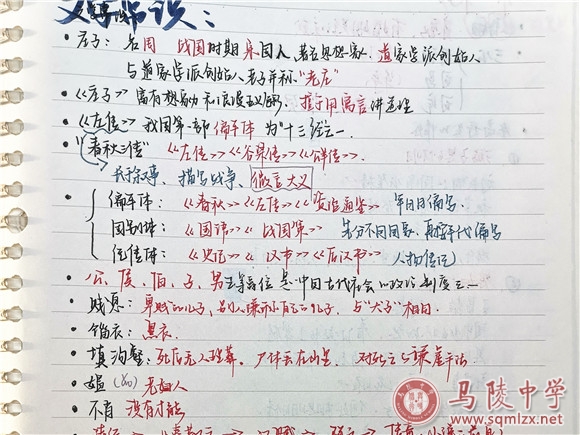 文学常识：
• 庄子：名周 战国时期宋国人，著名思想家，道家学派创始人
与道家学派创始人老子并称"老庄"
• 《庄子》富有想象力和浪漫主义色彩，擅于用寓言讲道理
• 《左传》我国第一部编年体 为"十三经"之一
• "春秋三传" 《左传》《谷梁传》《公羊传》.
长于叙事、描写战争、微言大义
• 编年体：《春秋》《左传》《资治通鉴》 年月日编写
国别体：《国语》《战国策》 先分不同国家，再按年代编写
纪传体：《史记》《汉书》《后汉书》 人物传记
• 公、侯、伯、子、男五等爵位是中国古代社会的政治制度之一
• 贱息：卑贱的儿子，别人谦称自己的儿子，与"犬子"相同.
• 缁衣：黑衣.
• 填沟壑：死后无人埋葬，尸体丢在山里. 对死亡的谦虚说法
• 媪(ǎo) 老妇人
• 不肖 没有才能
马陵中学
www.sqmlzx.net